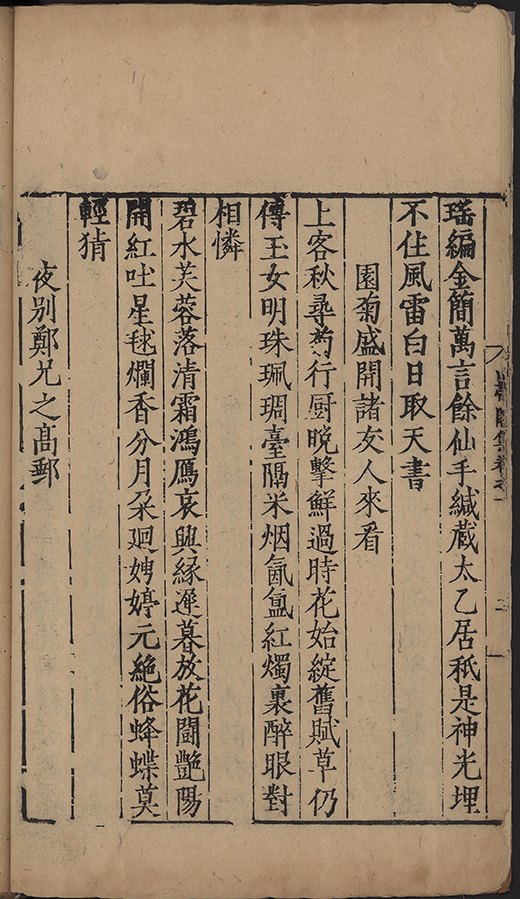 瑤編金簡萬言餘仙手緘蔵太乙居秪是神光埋
不住風雷白日取天書
園菊盛開諸友人來看
上客秋尋菊行厨晩擊鮮過時花始綻舊賦草仍
傳玉女明珠珮琱臺隔米烟氤氲紅燭裏醉眼對
相憐
碧水芙蓉落清霜鴻鴈哀興緣遲暮放花鬪艶陽
開紅吐星毬爛香分月朶廻娉婷元絶俗蜂蝶莫
輕猜
夜别鄭兄之髙郵